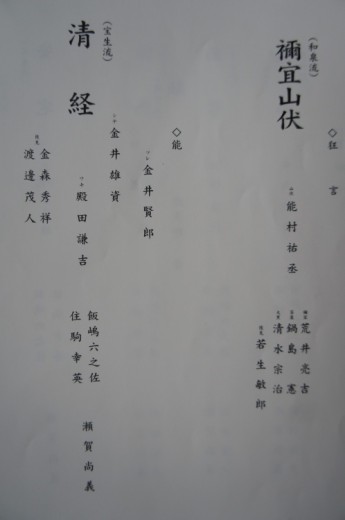 ◇狂言
(和泉流)
禰宜山伏
能村祐丞
荒井亮吉
鍋島憲
清水宗治
若生敏郎
◇能
(宝生流)
清経
ツレ
金井賢郎
シテ
金井雄資
ワキ
殿田謙吉
金森秀祥
渡邊茂人
飯嶋六之佐
住駒幸英
瀬賀尚義